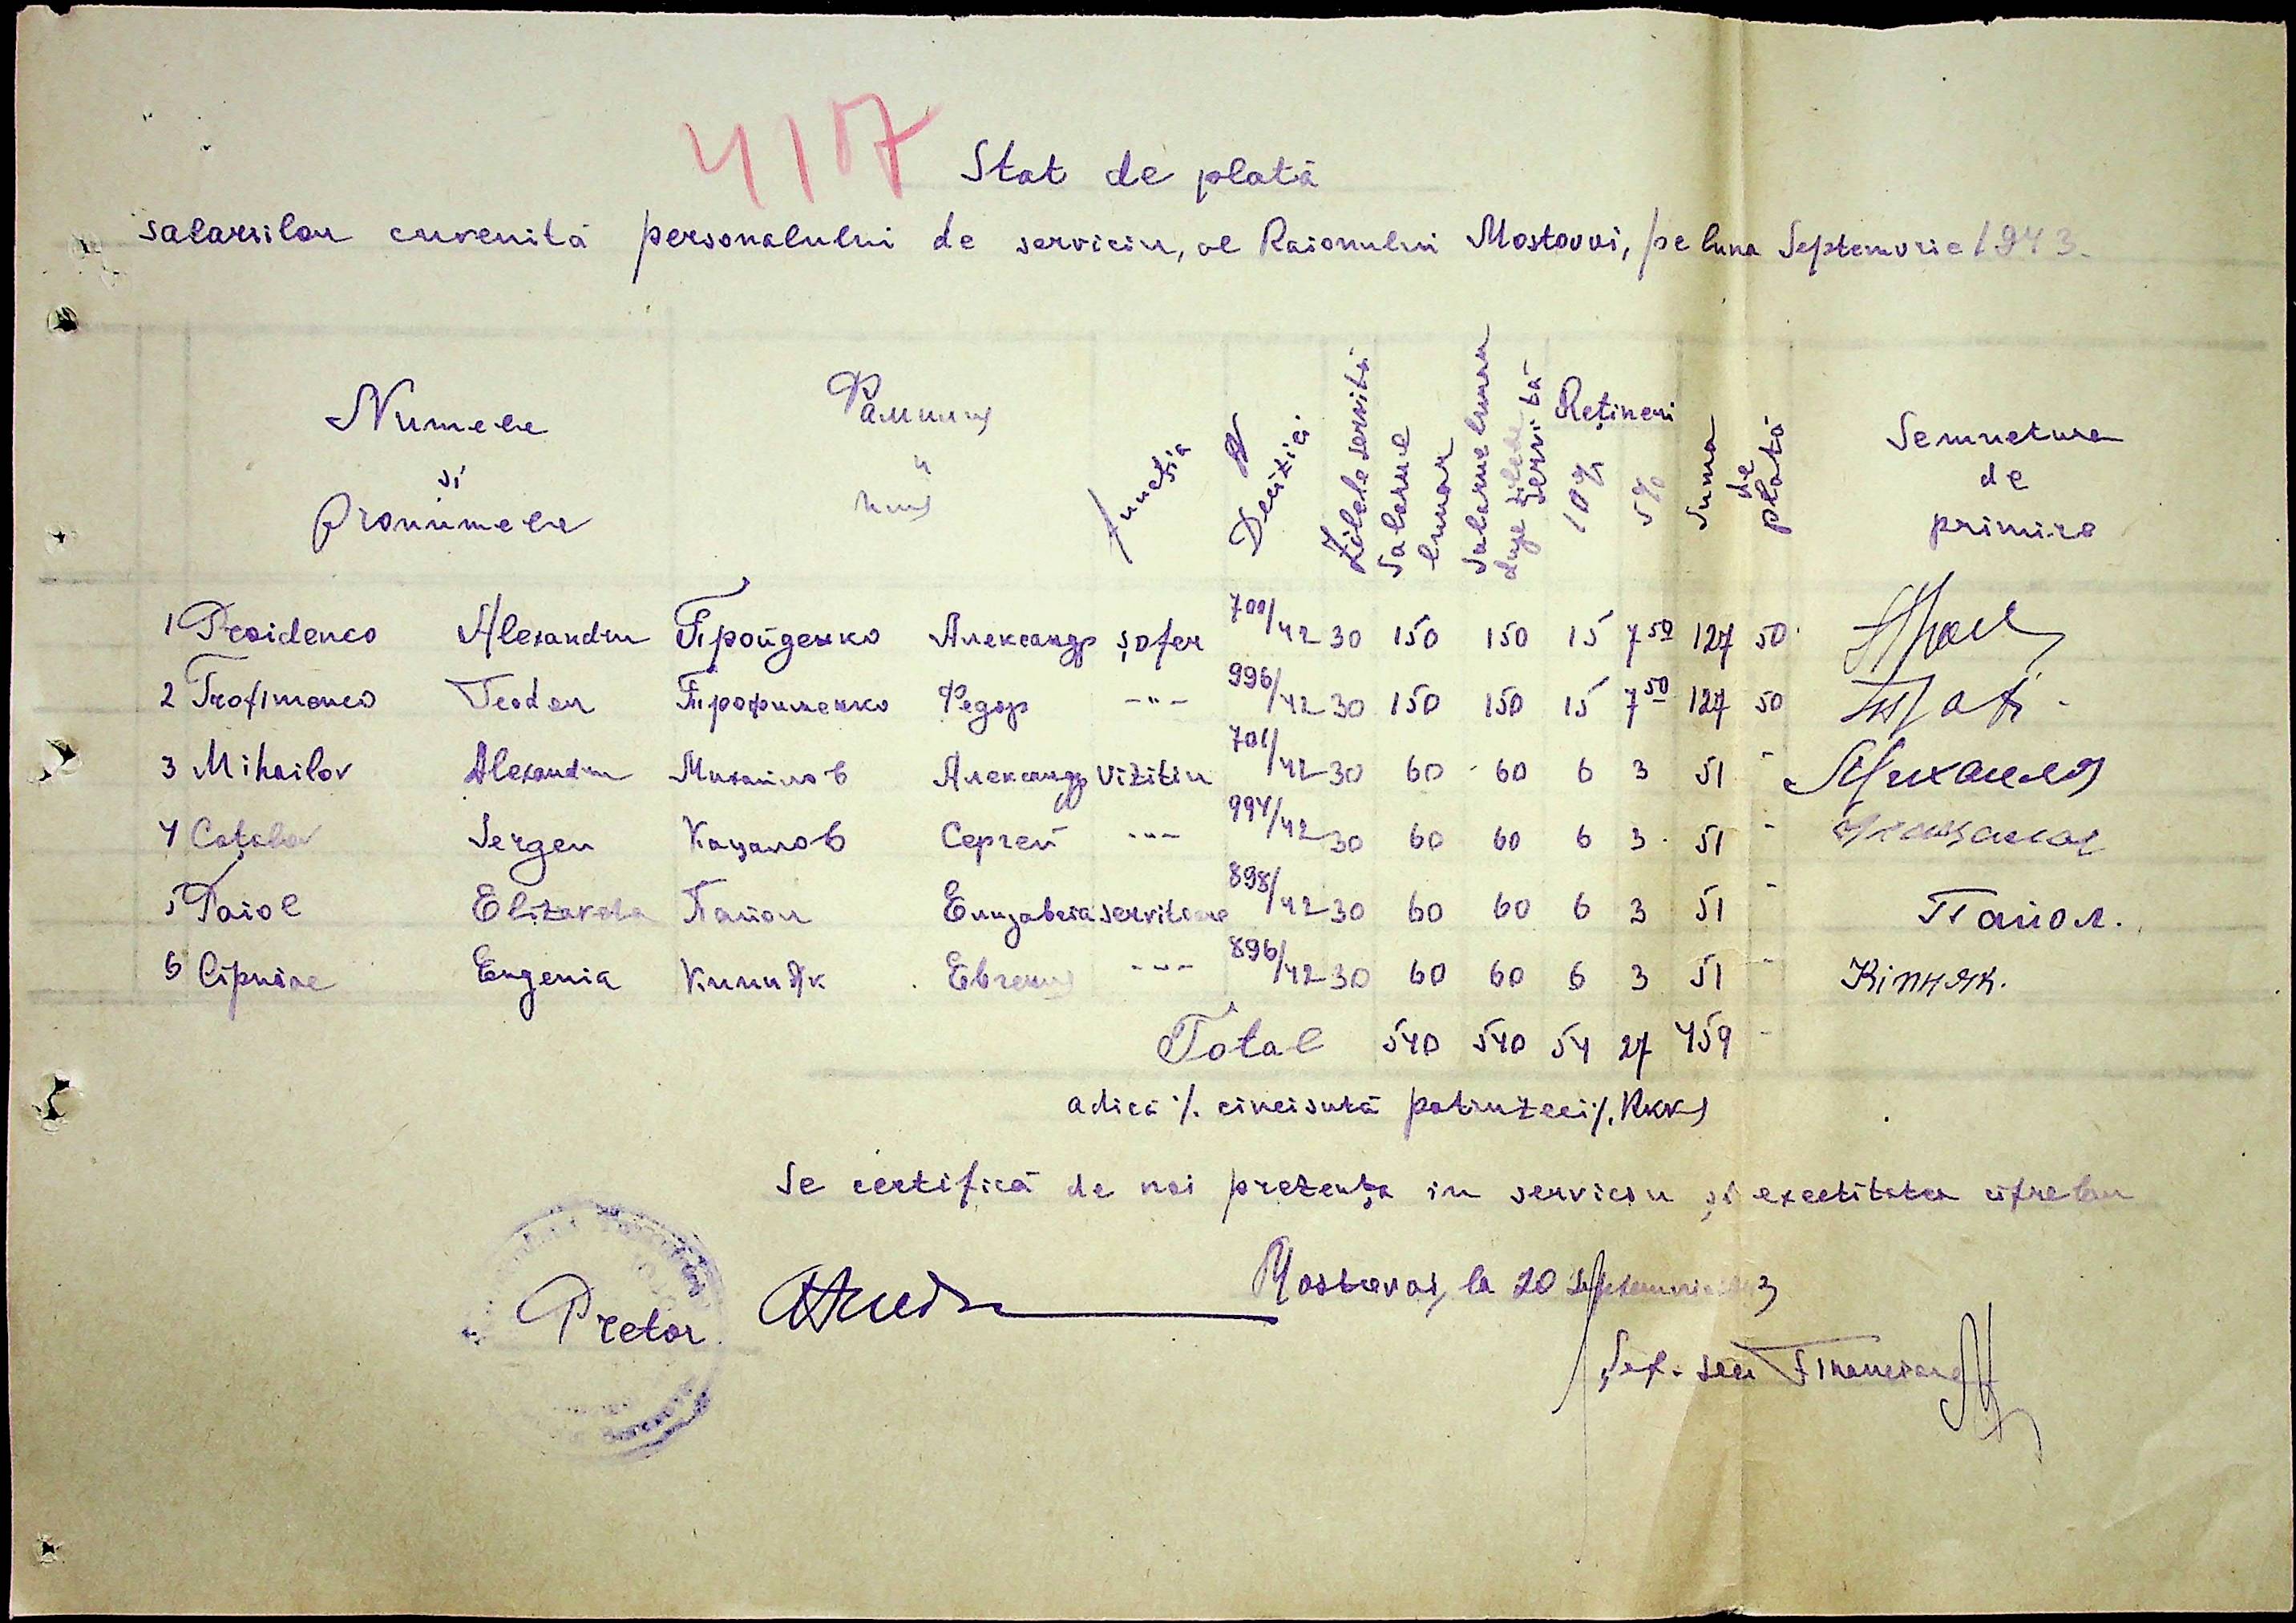 4107
Stat de plată
salariilor cuvenită personalului de serviciu, al Raionului Mostovoi, pe luna Septemvrie 1943.
Numele și Pronumele
Фамилия и имя
funcția
N Deciziei
Zilele servită
Salariul lunar
Salariul lunar după zilele servită
Rețineri
10%
5%
Suma de plată
Semnetura de primire
1 Proidenco Alexandru Пройденко Александр șofer 700/42 30 150 150 15 7 50 127 50
2 Trofimenco Teodor Трофименко Федор -"- 996/42 30 150 150 15 7 50 127 50
3 Mihailov Alexandru Михайлов Александр vizitiu 701/42 30 60 - 60 6 3 51 -
4 Sergeu Сергей -"- 997/42 30 60 60 6 3 51 -
5 Paiol Elizaveta Пайол Елизавета servitoare 898/42 30 60 60 6 3 51 - Пайол.
6 Cipniac Eugenia Кипияк Евгения -"- 896/42 30 60 60 6 3 51 - Кіпняк.
Total 540 540 54 27 459 -
adică %. cincisută patruzeci %. RKKS
Se certifică de noi prezența in serviciu și exectitatea cifrelor
Mostovoi, la 20 Septemvrie 1943
Pretor
Șef. Secr Financiare